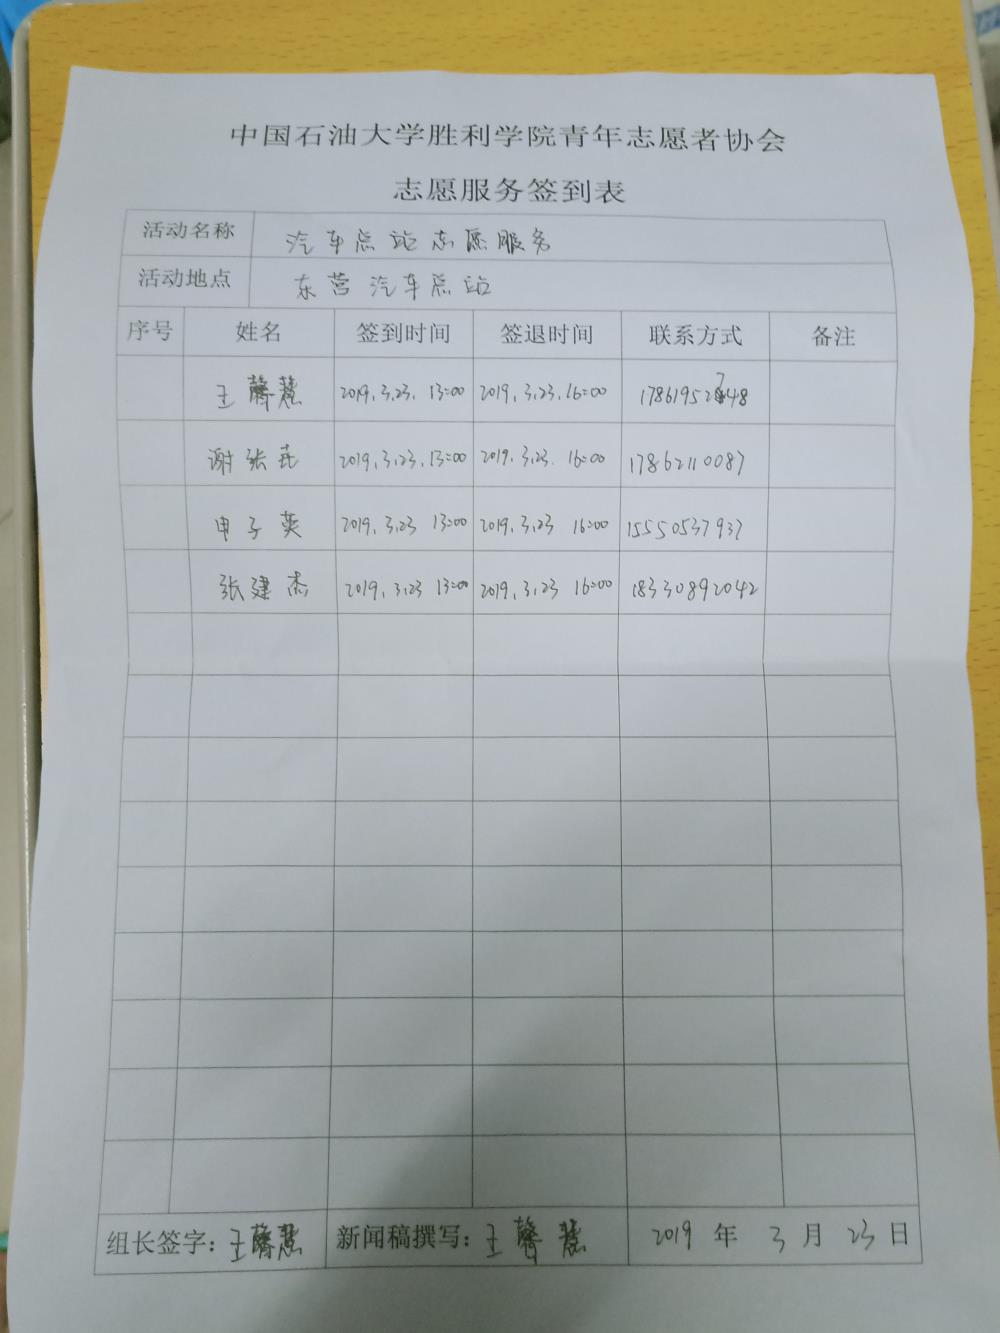 中国石油大学胜利学院青年志愿者协会
志愿服务签到表
活动名称 汽车总站志愿服务
活动地点 东营汽车总站
序号 姓名 签到时间 签退时间 联系方式 备注
王馨慧 2019.3.23. 13:00 2019.3.23.16:00 17861952748
谢张 2019.3.23.13:00 2019.3.23. 16:00 17862110087
申子英 2019.3.23 13:00 2019.3.23 16:00 15550537937
张建杰 2019.3.23 13:00 2019.3.23 16:00 18330892042
组长签字:王馨慧 新闻稿撰写:王馨慧 2019年3月23日